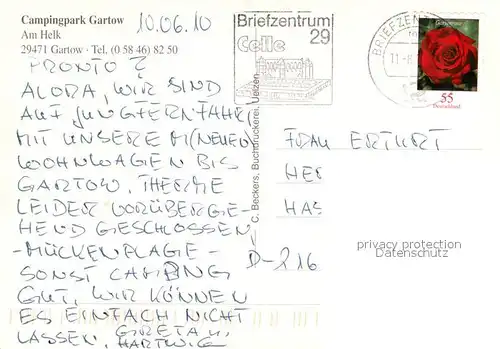 Campingpark Gartow
Am Helk
29471 Gartow · Tel. (0 58 46) 82 50
10.06.10
PRONTO ?
ALORA, WIR SIND
AUF JUNGFERNFAHRT
MIT UNSEREM (NEUEN)
WOHNWAGEN BIS
GARTOW, THERME
LEIDER VORÜBERGE-
HEND GESCHLOSSEN
-MÜCKENPLAGE-
SONST CAMPING
GUT, WIR KÖNNEN
ES EINFACH NICHT
LASSEN, GRETA U.
HARTWIG
C. Beckers, Buchdruckerei, Uelzen
Briefzentrum
29
Celle
BRIEFZEN
11.-8
Gartenrose
55
Deutschland
FRAU ERTURT
HER
HAS
D-216
privacy protection
Datenschutz